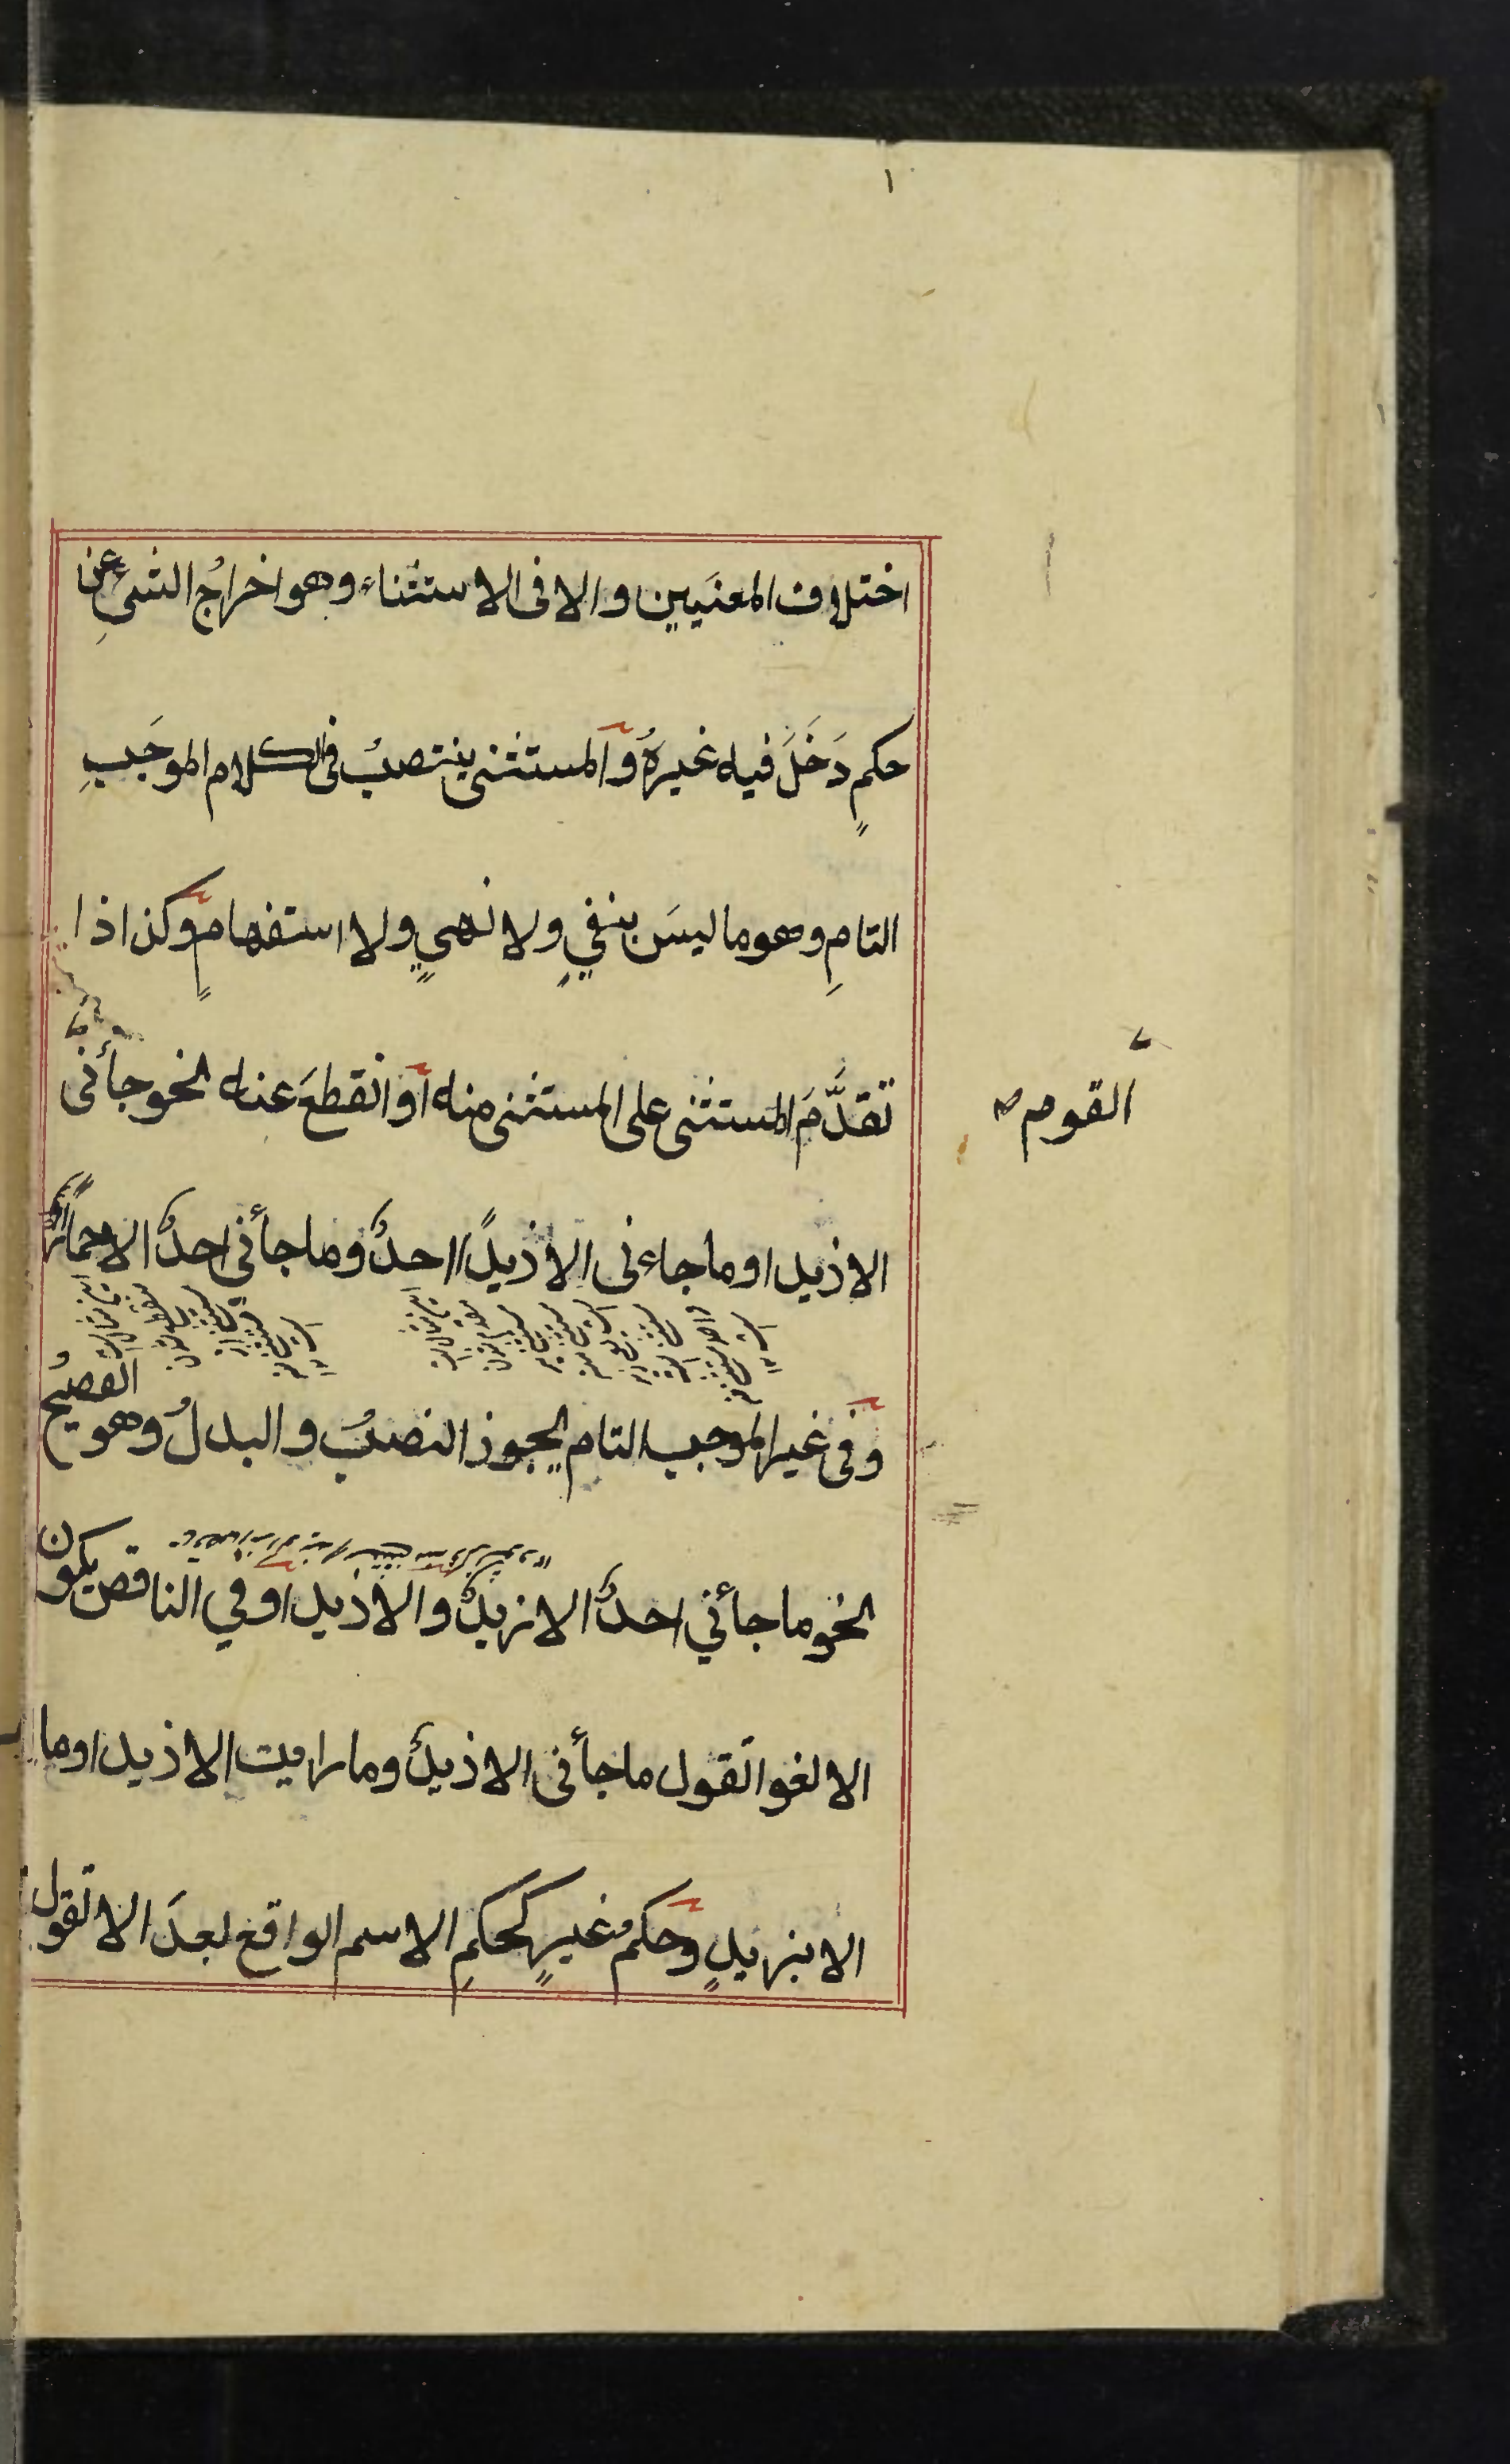 ١
اختلاف المعنَيين والا فى الاستثناء وهو اخراجُ الشىءِ عن
حكمٍ دَخَلَ فيه غيرهُ والمستثنى ينتصبُ فى الكلام الموجَبِ
التامِ وهو ما ليسَ بنفيٍ ولا نهىٍ ولا استفهامٍ وكذا اذا
تقدَّمَ المستثنى على المستثنى منه او انقطعَ عنه نحو جأنى
القوم صح
الا زيدا وما جاءنى الا زيداً احدٌ وما جأنى احدٌ الا حماراً
وفى غير الموجب التام يجوز النصبُ والبدلُ وهو الفصيحُ
نحو ما جأني احدٌ الا زيدٌ والا زيدا وفي الناقص يكون
الا لغوا تقول ما جأنى الا زيدٌ وما رايت الا زيدا وما
الا بزيدٍ وحكم غيرٍ كحكمِ الاسم الواقع بعدَ الا تقول